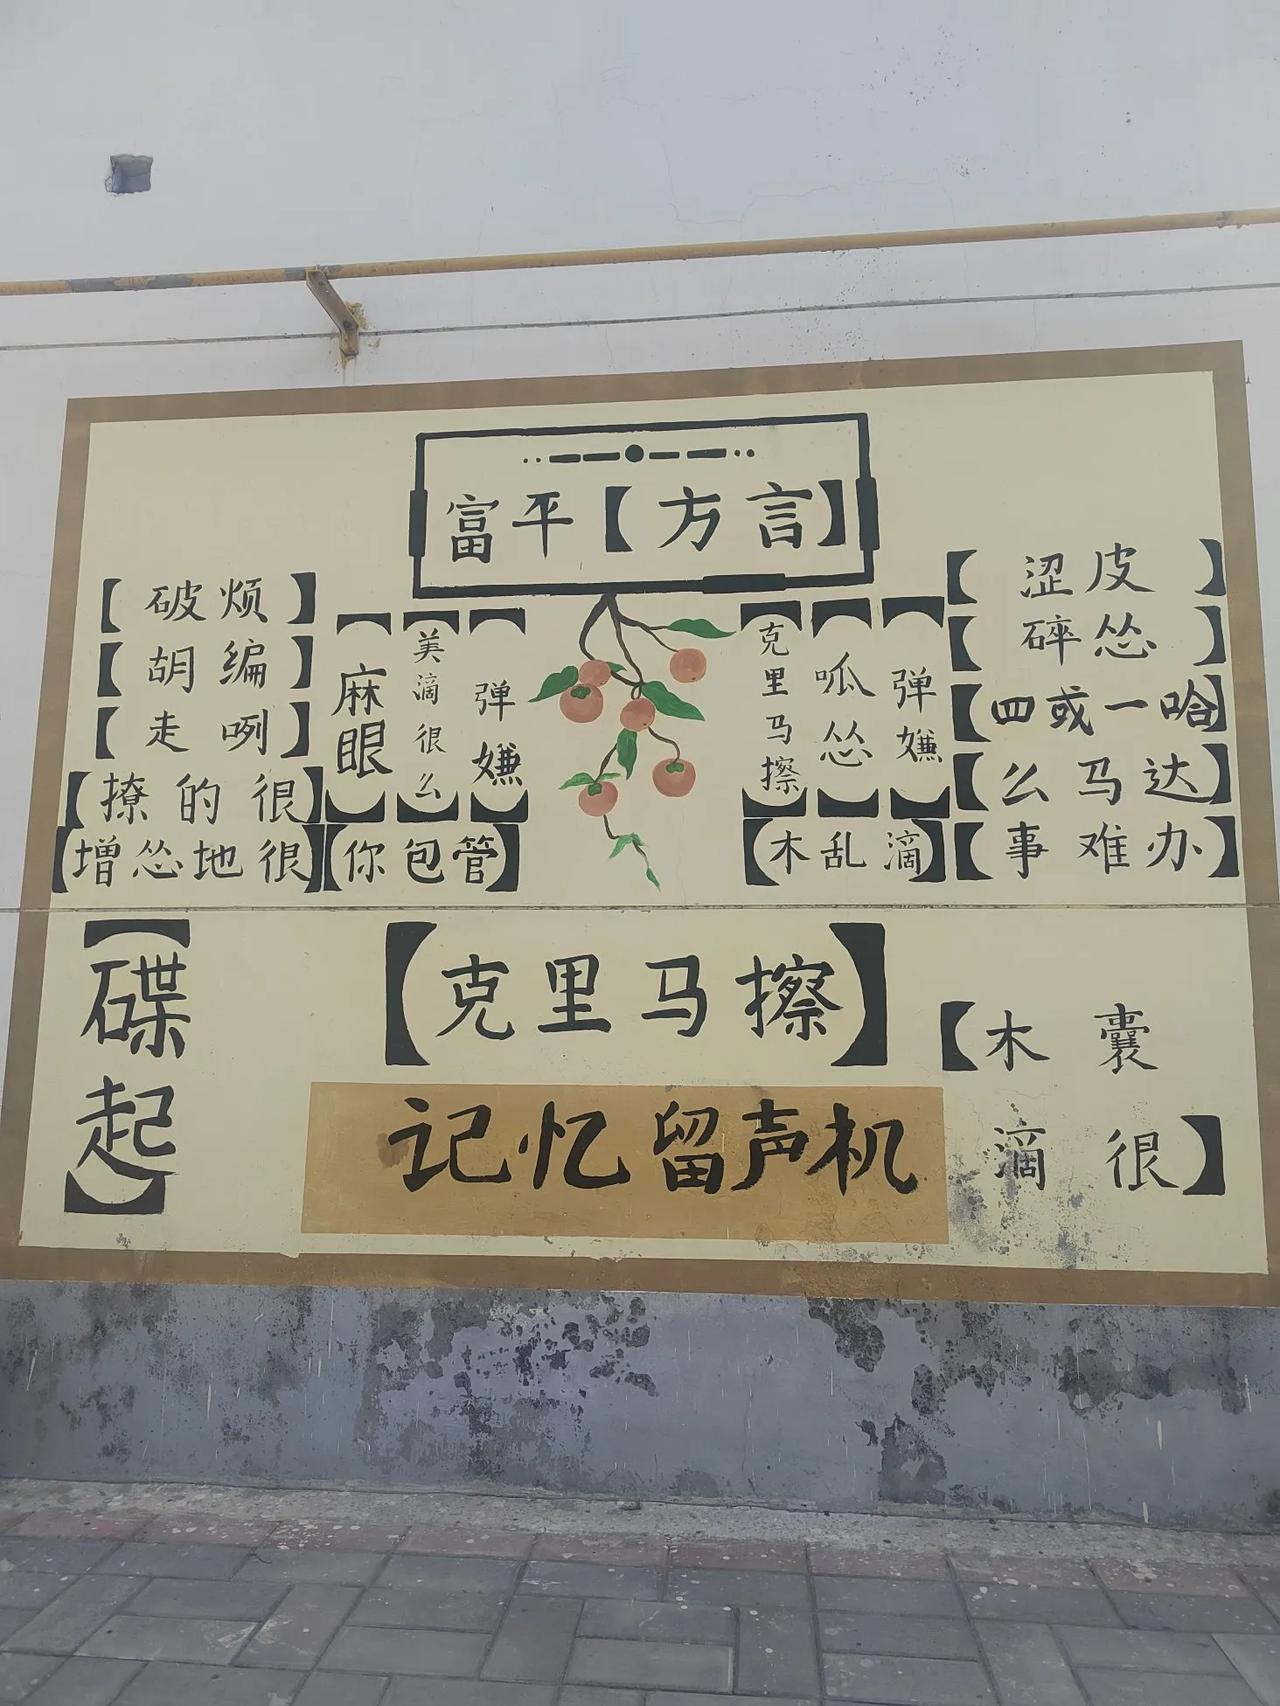 富平【方言】
【破烦】
【胡编】
【走咧】
【撩的很】
【增怂地很】
【麻眼】
【美滴很么】
【弹嫌】
【你包管】
【克里马擦】
【呱怂】
【弹嫌】
【木乱滴】
【涩皮】
【碎怂】
【四或一哈】
【么马达】
【事难办】
【碟起】
【克里马擦】
【木囊
滴很】
记忆留声机